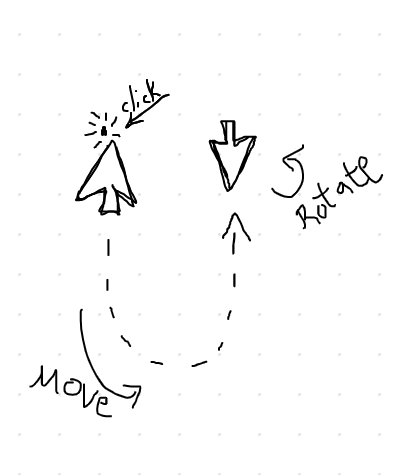 click
Rotate
Move